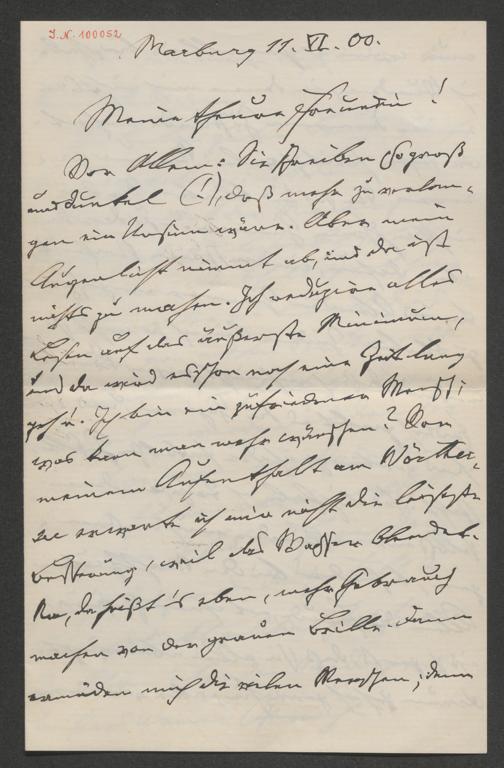 J.N. 100052
Marburg 11. VI. 00.
Meine theure Freundin!
Vor Allem: Sie schreiben so groß
und dunkel (!), daß mehr zu verlan-
gen ein Unsinn wäre. Aber mein
Augenlicht nimmt ab, und da ist
nichts zu machen. Ich reduzire alles
Lesen auf das äußerste Minimum,
und da wird es schon noch eine Zeit lang
geh'n. Ich bin ein zufriedener Mensch;
was kann man mehr wünschen? Von
meinem Aufenthalt am Wörther-
see erwarte ich mir nicht die leiseste
Besserung, weil das Wasser blendet.
Na, da heißt's eben, mehr Gebrauch
machen von der grauen Brille. Dann
ermüden mich die vielen Menschen; denn